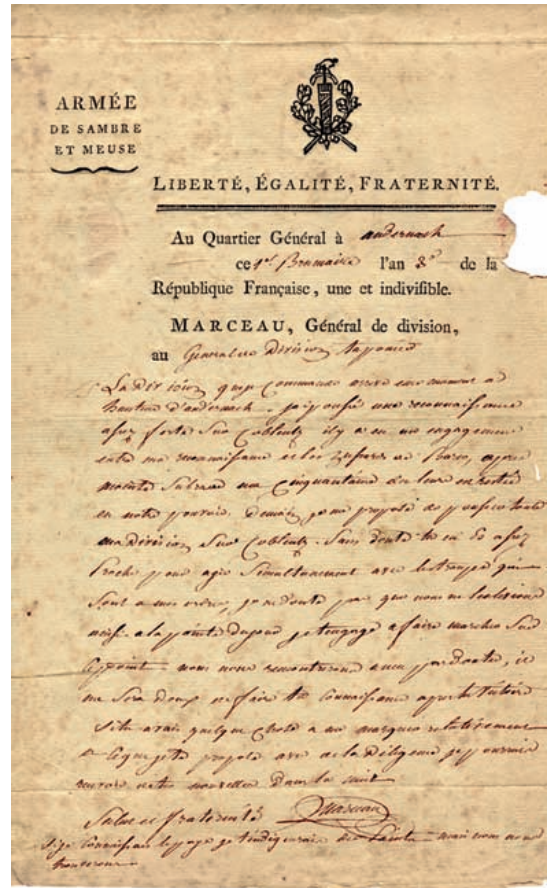 ARMÉE
DE SAMBRE
ET MEUSE
LIBERTÉ, ÉGALITÉ, FRATERNITÉ.
Au Quartier Général à andernach
ce 1er Brumaire l'an 3e de la
République Française, une et indivisible.
MARCEAU, Général de division,
au Général de Division
La division que je commande arrive en ce moment a
hauteur d'andernach. j'ai poussé une reconnaissance
assez forte sur Coblentz il y a eu un engagement
entre ma reconnaissance et les de Barco, après
sabrade une cinquantaine des leurs est resté
en notre pouvoir. Demain je me propose de toute
ma division sur Coblentz. Sans doute tu en es assez
proche pour agir simultanement avec les troupes qui
sont a mes ordres, je ne doute pas que nous ne
a la pointe du jour je t'engage a faire marcher sur
nous nous rencontrerons sans doute, il
me sera doux de faire ta connaissance
si tu avais quelque chose a me marquer relativement
a ce que je te propose avec de la diligence je pourrais
recevoir de tes nouvelles dans la nuit
Salut et fraternité Marceau
si je connaissais le pays je t'indiquerais mais nous nous
trouverons